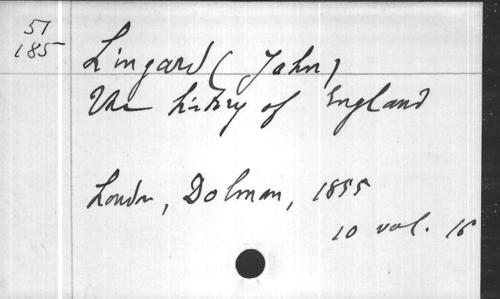 51
185
Lingard (John)
The history of England
London, Dolman, 1855
10 vol. 16